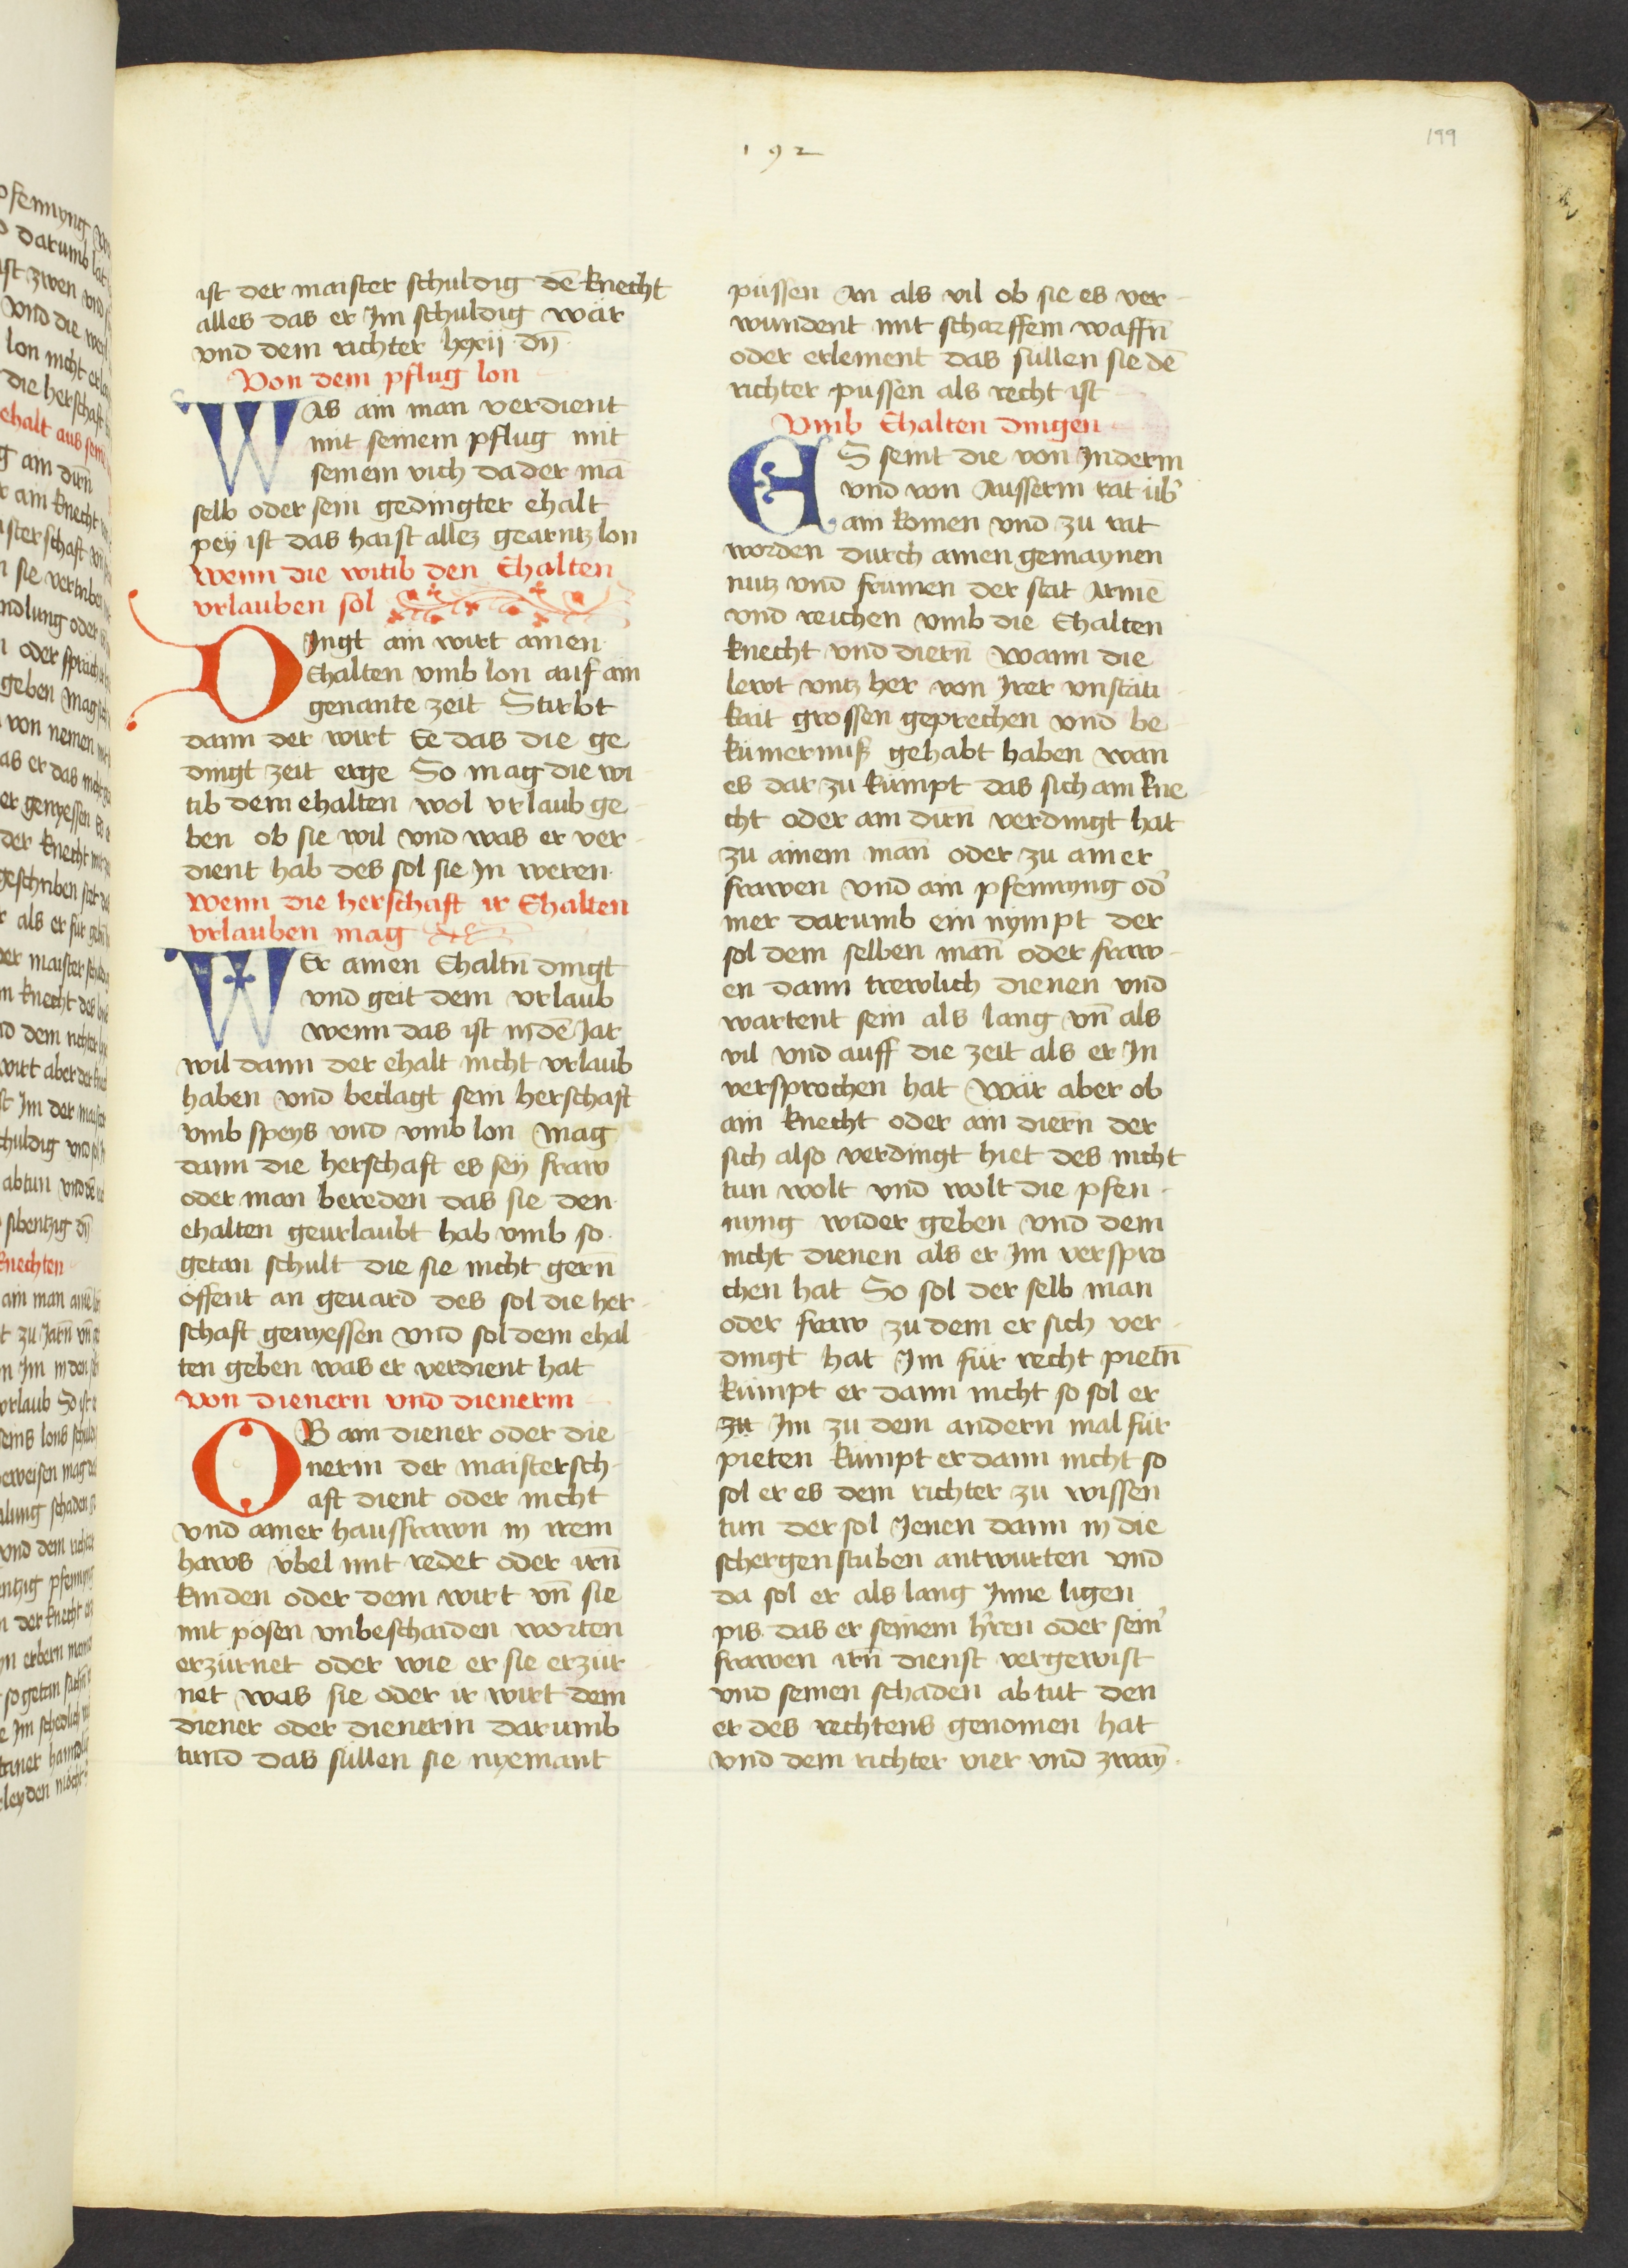 192
199
ist der maister schuldig dē knecht
alles das er Im schuldig wär
vnd dem richter lxxij dn̄
Von dem pflug lon
WAs ain man verdient
mit seinem pflug mit
seinem vich da der mā
selb oder sein gedingter ehalt
pey ist das haist allez gearntz lon
Wenn die witib den Ehalten
vrlauben sol
DIngt ain wirt ainen
Ehalten vmb lon auf ain
genante zeit Stirbt
dann der wirt Ee das die ge
dingt zeit erge So mag die wi
tib dem ehalten wol vrlaub ge
ben ob sie wil vnd was er ver
dient hab des sol sie In weren
Wenn die herschaft ir Ehalten
vrlauben mag
WEr ainen Ehaltn̄ dingt
vnd geit dem vrlaub
wenn das ist in dē Jar
wil dann der ehalt nicht vrlaub
haben vnd beclagt sein herschaft
vmb speys vnd vmb lon Mag
dann die herschaft es sey fraw
oder man bereden das sie den
ehalten geurlaubt hab vmb so
getan schult die sie nicht gern̄
öffent an geuard des sol die her
schaft genyessen vnd sol dem ehal
ten geben was er verdient hat
Von dienern vnd dienerin
OB ain diener oder die
nerin der maistersch
aft dient oder nicht
vnd ainer haussfrawn in irem
haws übel mit redet oder irn̄
kinden oder dem wirt vn̄ sie
mit posen vnbeschaiden worten
erzürnet oder wie er sie erzür
net was sie oder ir wirt dem
diener oder dienerin darumb
tund das süllen sie nyemant
püssen An als vil ob sie es ver
wundent mit scharffem waffn̄
oder erlement das sullen sie dē
richter pussen als recht ist
Vmb Ehalten dingen
ES seint die von Inderm
vnd von Ausserm rat üb̾
ain komen vnd zu rat
worden durch ainen gemaynen
nutz vnd frumen der stat Armē
vnd reichen vmb die Ehalten
knecht vnd diern̄ Wann die
lewt vntz her von Irer vnstäti
kait grossen geprechen vnd be
kümerniß gehabt haben wan
es dar zu kümpt das sich ain kne
cht oder ain dirn̄ verdingt hat
zu ainem man̄ oder zu ainer
frawen vnd ain pfennyng od̾
mer darumb ein nympt der
sol dem selben man̄ oder fraw
en dann trewlich dienen vnd
wartent sein als lang vn̄ als
vil vnd auff die zeit als er In
versprochen hat Wär aber ob
ain knecht oder ain diern der
sich also verdingt hiet des nicht
tun wolt vnd wolt die pfen
nyng wider geben vnd dem
nicht dienen als er Im verspro
chen hat So sol der selb man
oder fraw zu dem er sich ver
dingt hat Im für recht pietn̄
kümpt er dann nicht so sol er
zu Im zu dem andern mal für
pieten kümpt er dann nicht so
sol er es dem richter zu wissen
tun der sol Jenen dann in die
schergenstuben antwurten vnd
da sol er als lang Inne ligen
pis das er seinem h̾ren oder sein̾
frawen irn̄ dienst vergewist
vnd seinen schaden abtut den
er des rechtens genomen hat
vnd dem richter vier vnd zwaīn